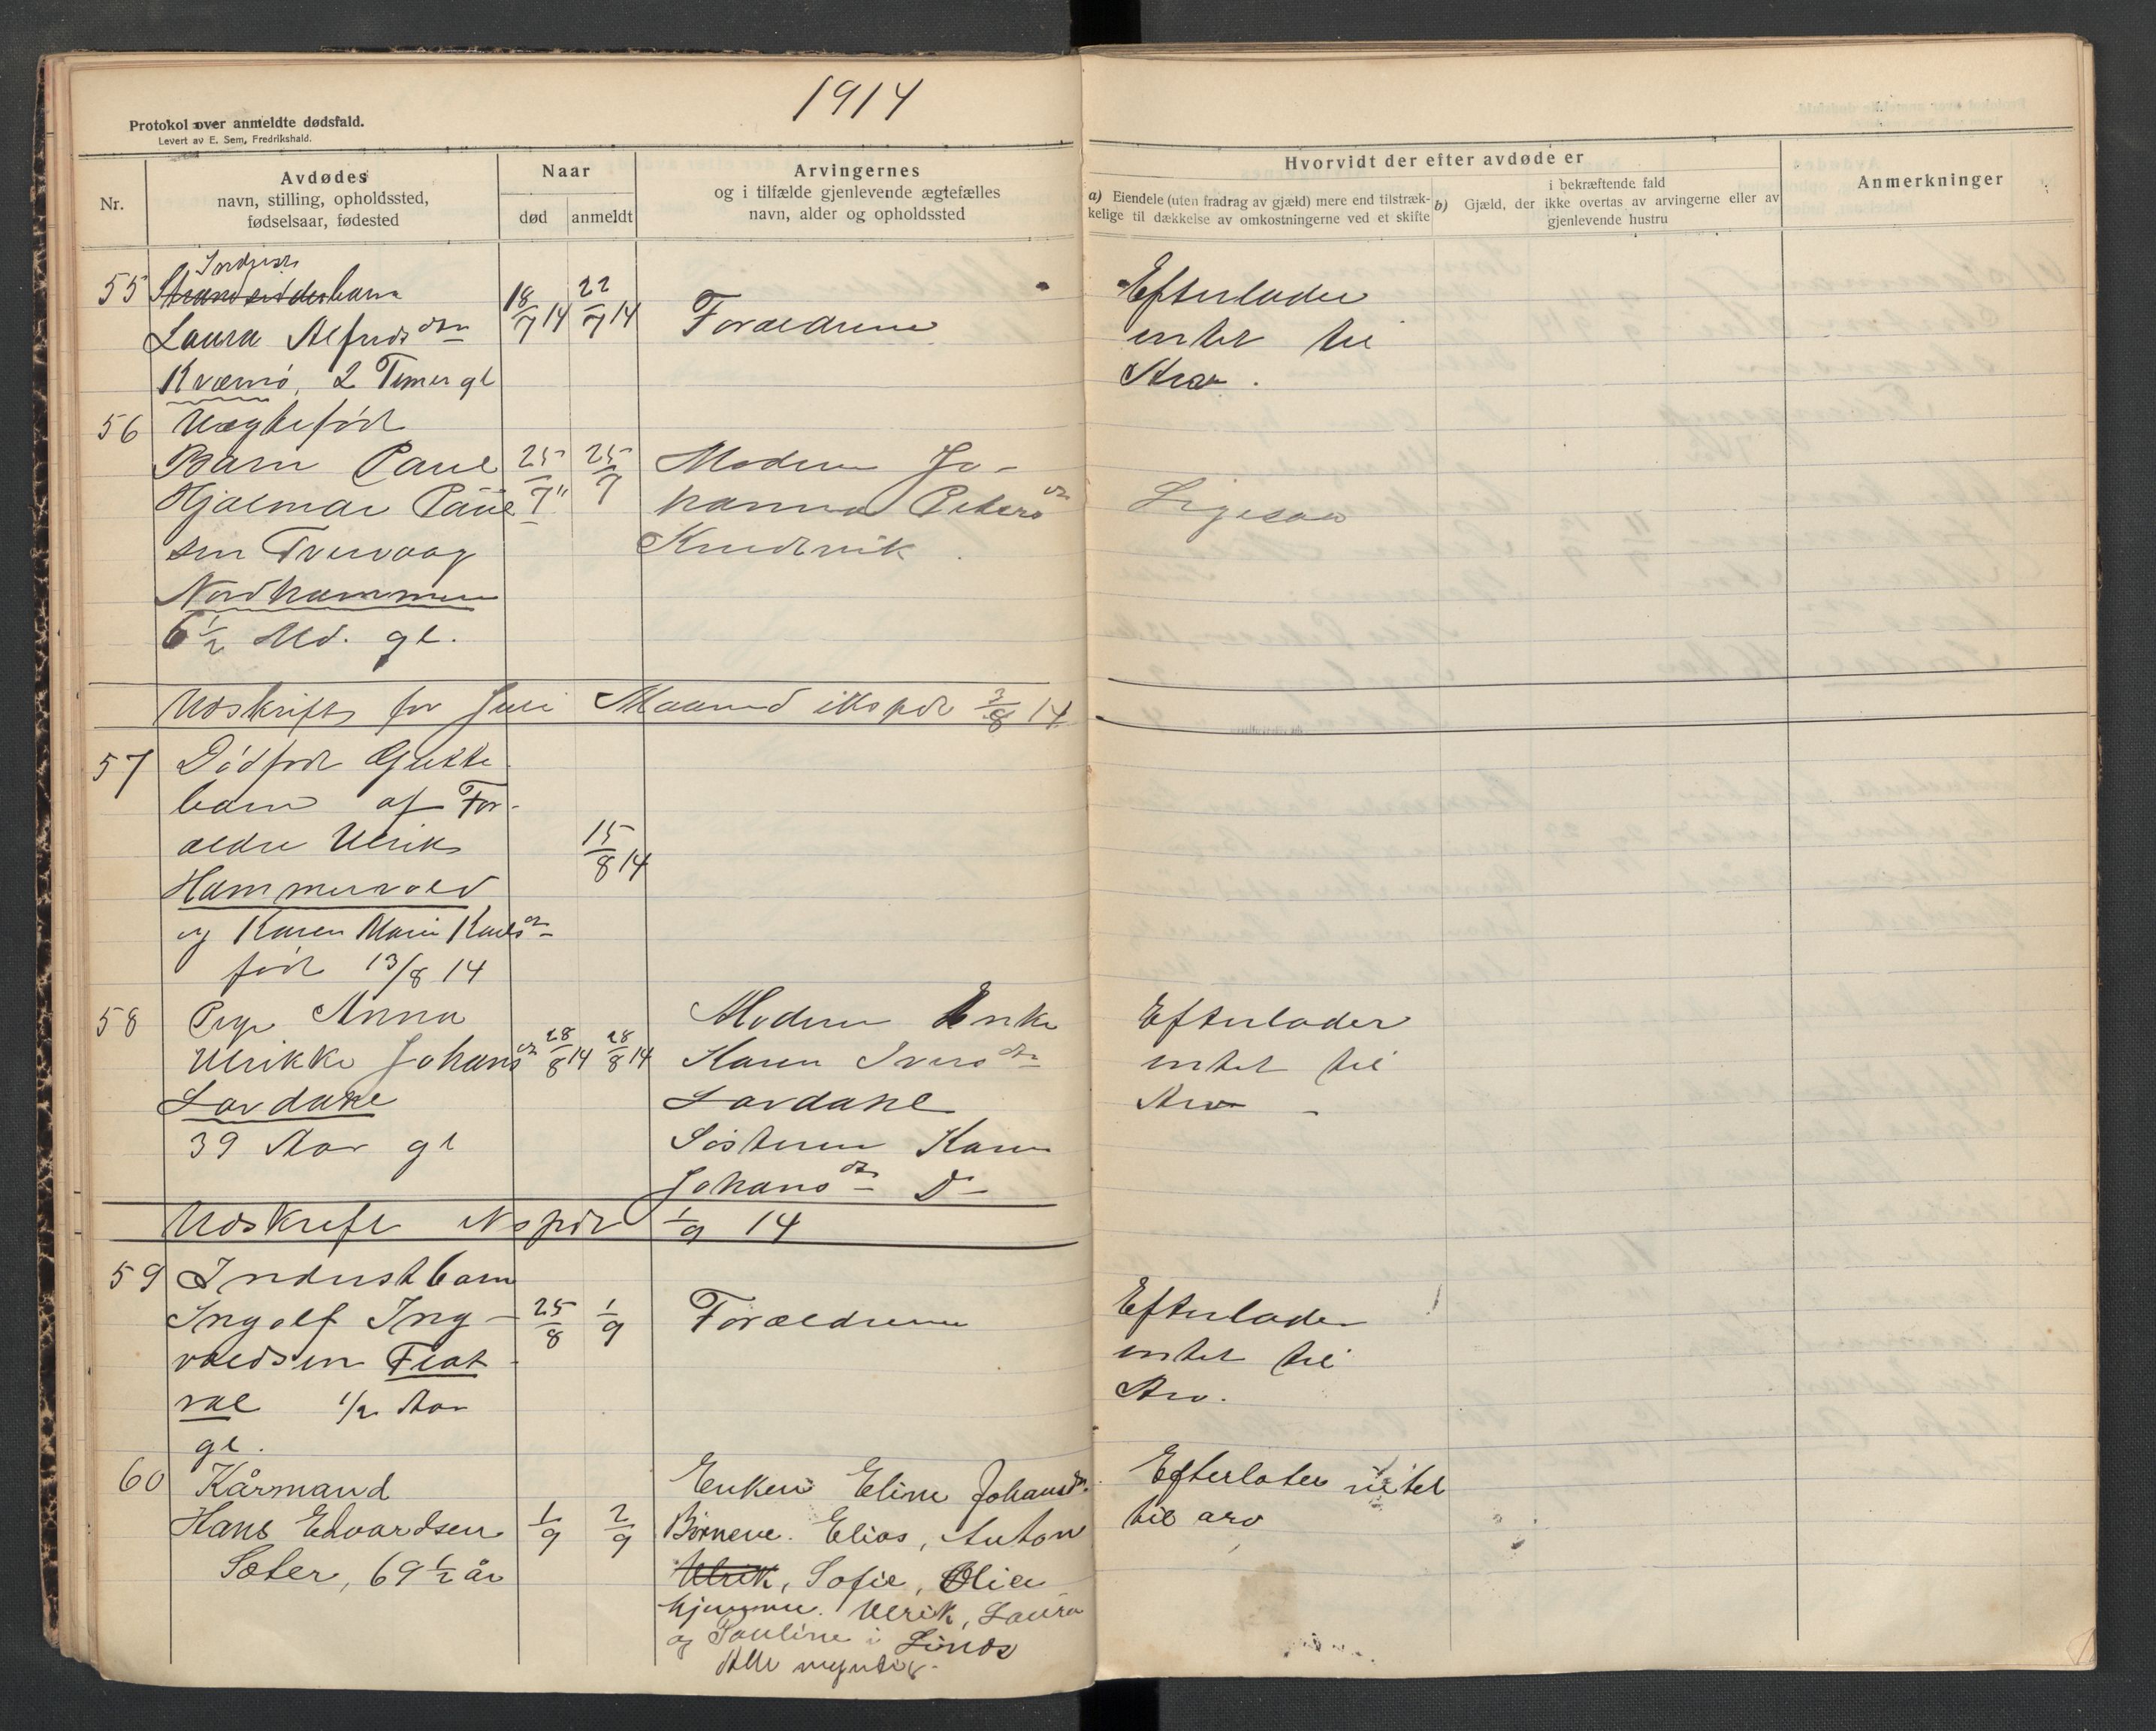 1914
Protokol over anmeldte dødsfald.
Levert av E. Sem, Fredrikshald.
Nr.
Avdødes
navn, stilling, opholdssted,
fødselsaar, fødested
Naar
død
anmeldt
Arvingernes
og i tilfælde gjenlevende ægtefælles
navn, alder og opholdssted
Hvorvidt der efter avdøde er
a) Eiendele (uten fradrag av gjæld) mere end tilstræk-
kelige til dækkelse av omkostningerne ved et skifte
b) Gjæld, der
i bekræftende fald
ikke overtas av arvingerne eller av
gjenlevende hustru
Anmerkninger
55
barn
Laura Alfreds dtr
Kværnø, 2 Timer gl
18/7 14
22/7 14
Forældrene
Efterlader
intet til
Arv.
56
Uægtefødt
Barn Paul
Hjalmar Paul
sen Tvervaag
Nordhammer
6 1/2 Md. gl.
25/7 "
25/7
Moderen Jo-
hanna Peters dtr
Knudsvik
Ligesaa
Udskrift for Juli Maaned eksped 3/8 14
57
Dødfødt Gutte
barn af For-
ældre Ulrik
Hammervold
og Karen Marie Karls dtr
født 13/8 14
15/8 14
58
Pige Anna
Ulrikke Johans dtr
Lordahl
39 Aar gl
28/8 14
28/8 14
Moderen Enke
Karen Ivers dtr
Lordahl
Søsteren Karen
Johans dtr Do
Efterlader
intet til
Arv
Udskrift eksped 1/9 14
59
Industbarn
Ingolf Ing-
valdsen Flat
val 1/2 Aar
gl.
25/8
1/9
Forældrene
Efterlader
intet til
Arv.
60
Kårmand
Hans Edvardsen
Sæter, 69 1/2 år
1/9
2/9
Enken Eline Johansdtr.
Børnene. Elias, Anton
Ulrik, Sofie, Olie
hjemme. Ulrik, Laura
og Pauline i
Alle myndig.
Efterlater intet
til arv